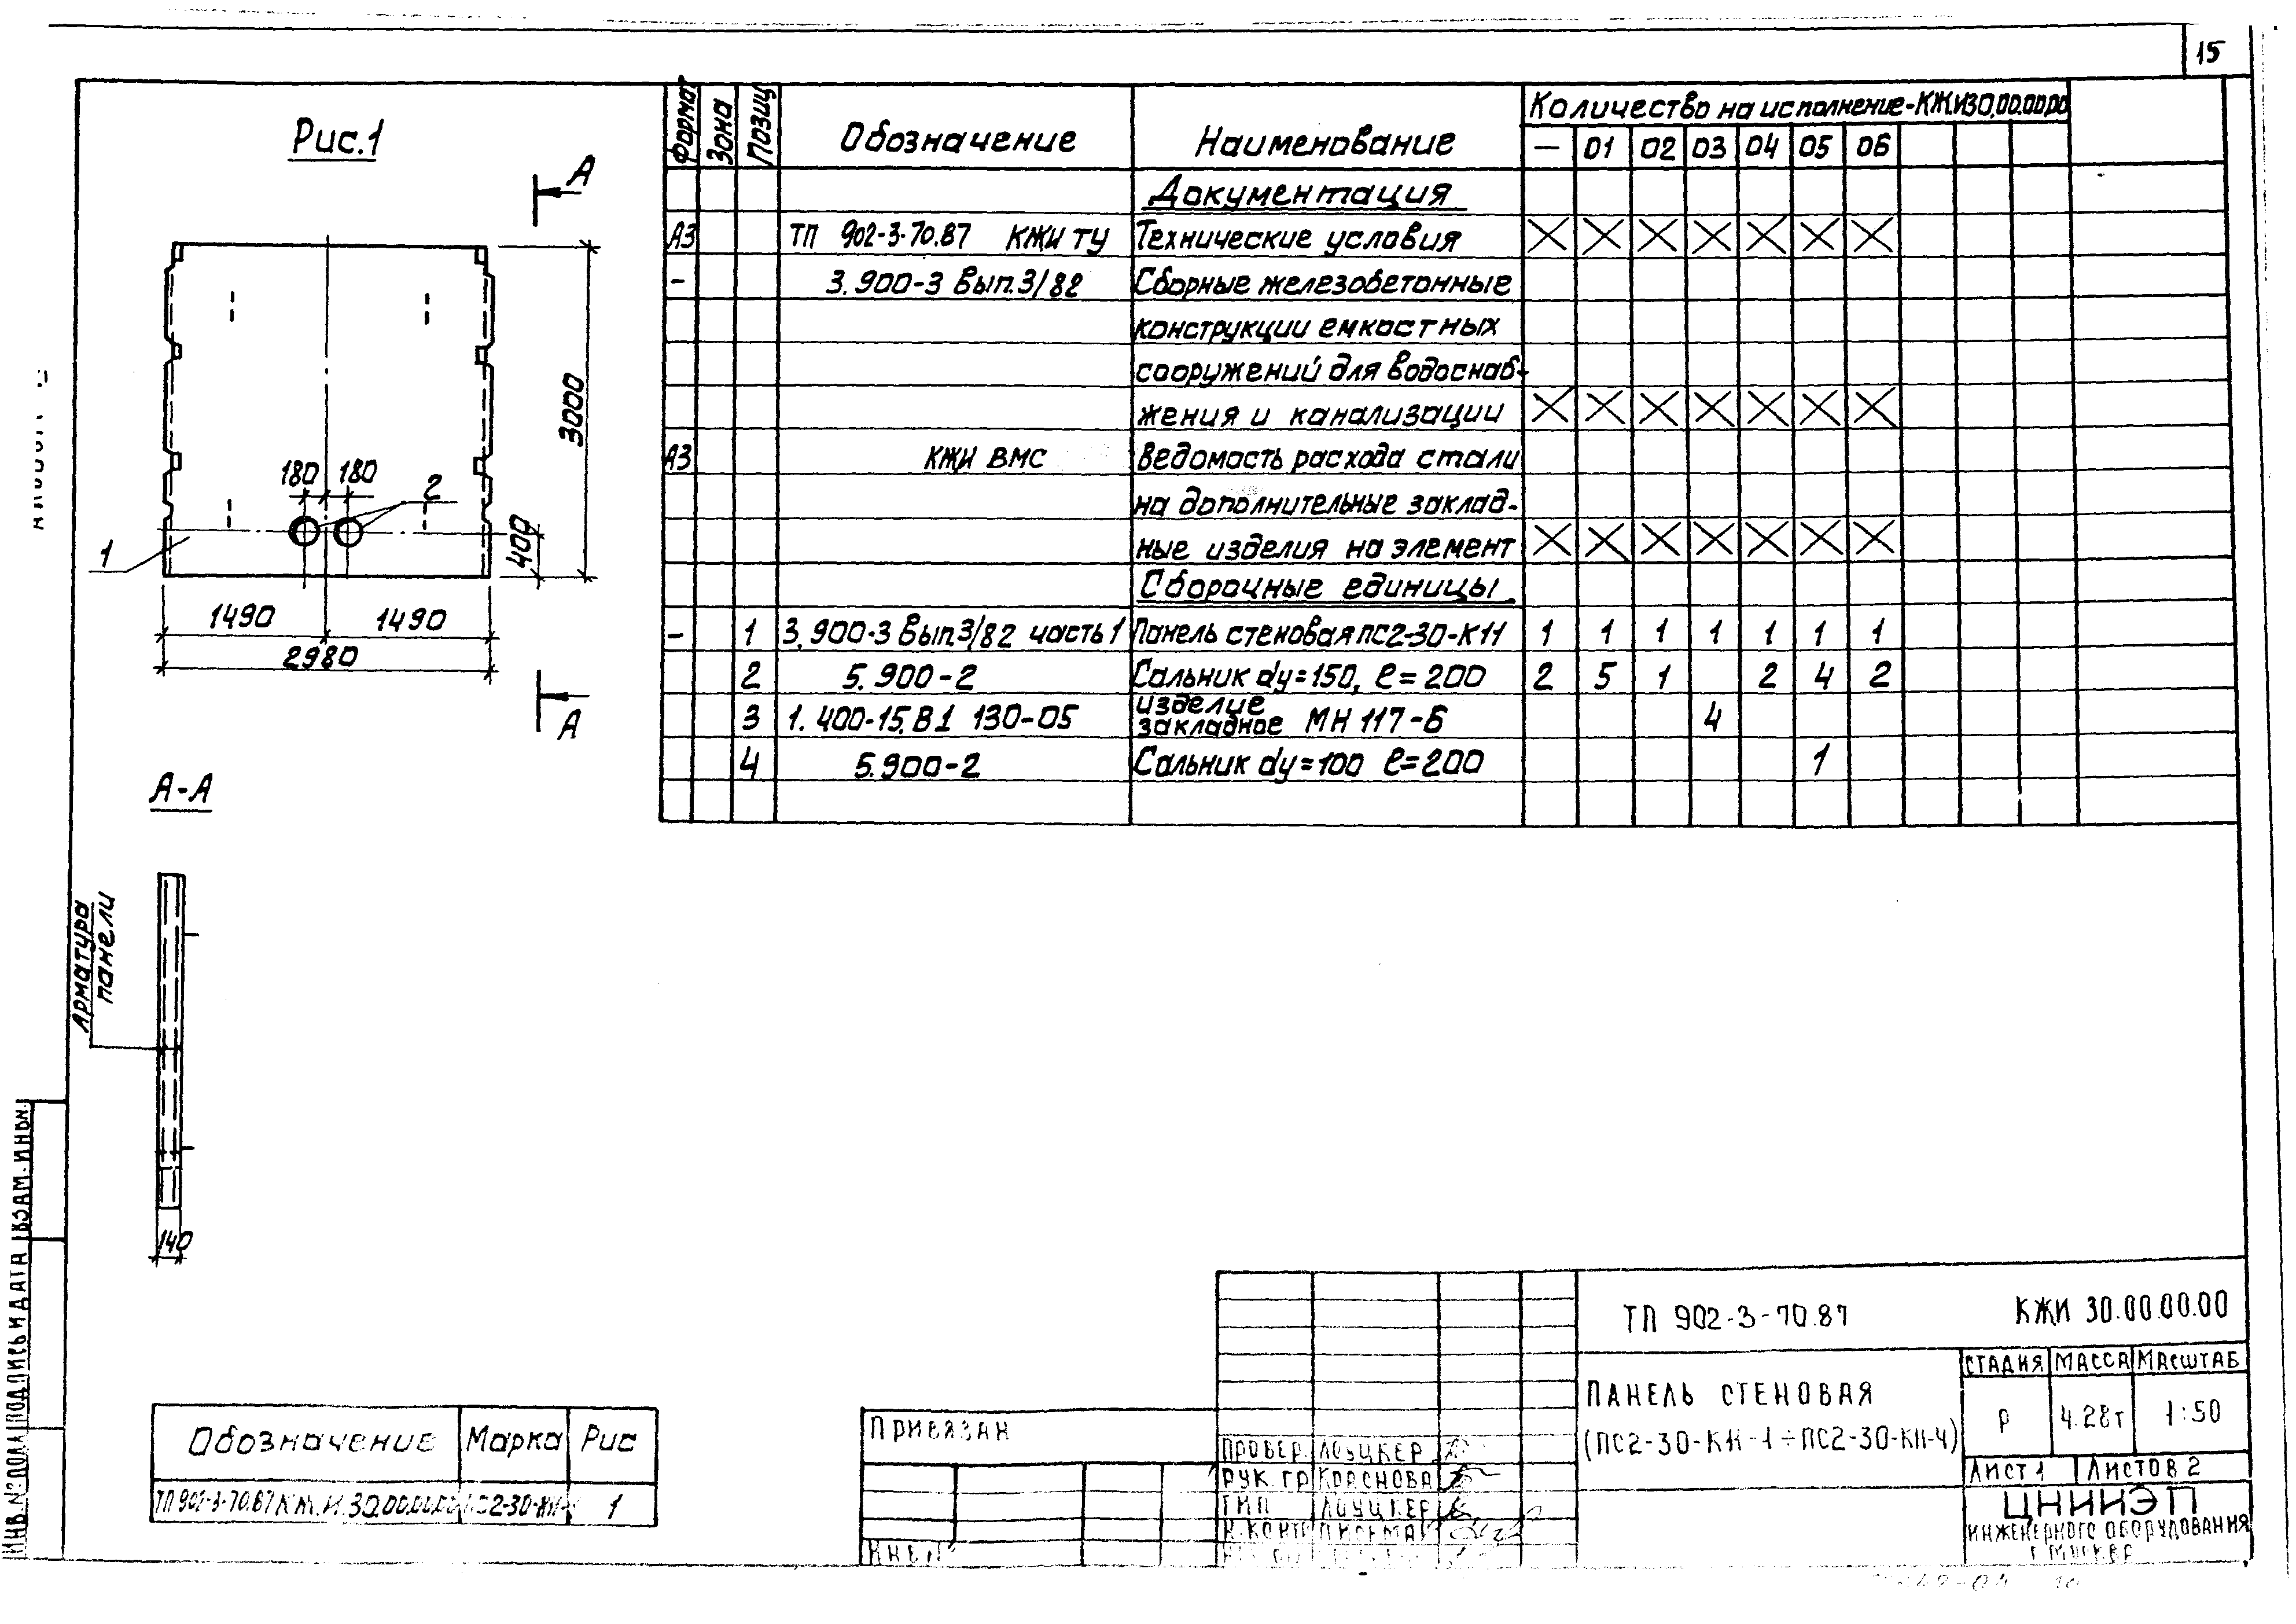 15
Рис.1
А
3000
180 180
2
1
400
1490 1490
2980
А
А-А
Арматура панели
140
Формат Зона Позиц Обозначение Наименование Количество на исполнение-КЖИ30.00.00.00
— 01 02 03 04 05 06
Документация
А3 ТП 902-3-70.87 КЖИ ТУ Технические условия
- 3.900-3 Вып.3/82 Сборные железобетонные
конструкции емкостных
сооружений для водоснаб-
жения и канализации
А3 КЖИ ВМС Ведомость расхода стали
на дополнительные заклад-
ные изделия на элемент
Сборочные единицы
- 1 3.900-3 Вып.3/82 часть 1 Панель стеновая ПС2-30-К11 1 1 1 1 1 1 1
2 5.900-2 Сальник dу=150, ℓ=200 2 5 1 2 4 2
3 1.400-15.В1 130-05 изделие закладное МН 117-6 4
4 5.900-2 Сальник dу=100 ℓ=200 1
ИНВ.№ ПОДЛ ПОДПИСЬ И ДАТА ВЗАМ.ИНВ.№
Обозначение Марка Рис
ТП 902-3-70.87 КЖ.И.30.00.00.00 1
ПРИВЯЗАН
ИНВ.№
ТП 902-3-70.87 КЖИ 30.00.00.00
ПАНЕЛЬ СТЕНОВАЯ
(ПС2-30-К11-1÷ПС2-30-К11-4)
СТАДИЯ МАССА МАСШТАБ
Р 4.28т 1:50
ЛИСТ 1 ЛИСТОВ 2
ЦНИИЭП
ИНЖЕНЕРНОГО ОБОРУДОВАНИЯ
Г. МОСКВА
ПРОВЕР. ЛОУЦКЕР
РУК. ГР КРАСНОВА
ГИП ЛОУЦКЕР
Н.КОНТР